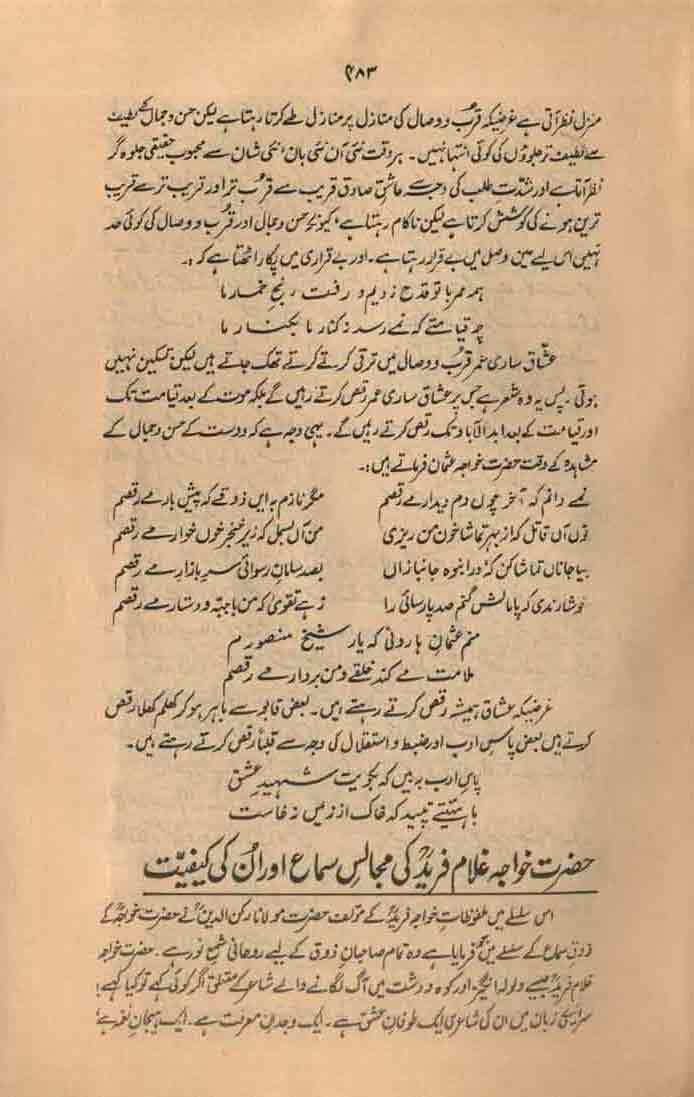 ۴۸۳
منزل نظر آتی ہے غرضیکہ قرب و وصال کی منازل پر منازل طے کرتا رہتا ہے لیکن حسن و جمال کے لطیف
سے لطیف تر جلووں کی کوئی انتہا نہیں۔ ہر وقت نئی آن نئی بان، نئی شان سے محبوب حقیقی جلوہ گر
نظر آتا ہے اور شدّتِ طلب کی وجہ سے عاشقِ صادق قریب سے قرب تر اور قریب تر سے قریب
ترین ہونے کی کوشش کرتا ہے لیکن ناکام رہتا ہے، کیونکہ حسن و جمال اور قرب و وصال کی کوئی حد
نہیں اس لیے عین وصل میں بے قرار رہتا ہے۔ اور بے قراری میں پکار اٹھتا ہے کہ:۔
ہمہ عمر با تو قدح زدیم و رفت رنج خمار ما
چہ قیامتے کہ نمے رسد ز کنار ما بکنار ما
عشّاق ساری عمر قرب و وصال میں ترقی کرتے کرتے تھک جاتے ہیں لیکن تسکین نہیں
ہوتی۔ پس یہ وہ شعر ہے جس پر عشاق ساری عمر رقص کرتے رہیں گے بلکہ موت کے بعد قیامت تک
اور قیامت کے بعد ابدالآباد تک رقص کرتے رہیں گے۔ یہی وجہ ہے کہ دوست کے حسن و جمال کے
مشاہدہ کے وقت حضرت خواجہ عثمان فرماتے ہیں:۔
نمے دانم کہ آخر چوں دم دیدار مے رقصم مگر نازم بہ ایں ذوقے کہ پیش یار مے رقصم
توں آں قاتل کہ از بہر تماشا خون من ریزی من آں بسمل کہ زیر خنجر خوں خوار مے رقصم
بیا جاناں تماشا کن کہ در انبوہ جانبازاں بصد سامان رسوائی سر بازار مے رقصم
خوشا رندی کہ پامالش کنم صد پارسائی را زہے تقویٰ کہ من با جبّہ و دستار مے رقصم
منم عثمان ہارونی کہ یار شیخ منصورم
ملامت مے کند خلقے و من بر دار مے رقصم
غرضیکہ عشاق ہمیشہ رقص کرتے رہتے ہیں۔ بعض قابو سے باہر ہو کر کھلم کھلا رقص
کرتے ہیں بعض پاسِ ادب اور ضبط و استقلال کی وجہ سے قلباً رقص کرتے رہتے ہیں۔
پاس ادب ببیں کہ بکویت شہیدِ عشق
باہستگی تپید کہ خاک از زمیں نخاست
حضرت خواجہ غلام فریدؒ کی مجالسِ سماع اور اُن کی کیفیّت
اس سلسلے میں ملفوظاتِ خواجہ فریدؒ کے مؤلف حضرت مولانا رکن الدینؒ نے حضرت خواجہؒ کے
ذوق سماع کے سلسلے میں جو کچھ فرمایا ہے وہ تمام صاحبانِ ذوق کے لیے روحانی شمع نور ہے۔ حضرت خواجہ
غلام فریدؒ جیسے ولولہ انگیز، اور کوہ و دشت میں آگ لگانے والے شاعر کے متعلق اگر کوئی کہے تو کیا کہے؛
سرائیکی زبان میں ان کی شاعری ایک طوفانِ عشق ہے۔ ایک وجدانِ معرفت ہے۔ ایک ہیجانِ نغمہ ہے؛